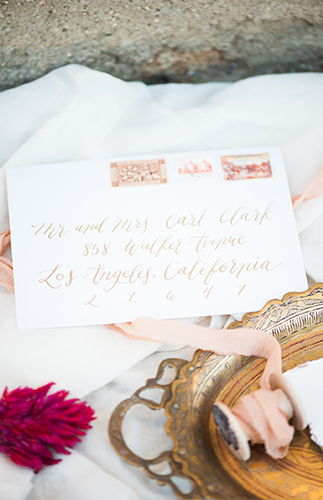 Mr and Mrs Carl Clark
858 Walker Avenue
Los Angeles, California
21641